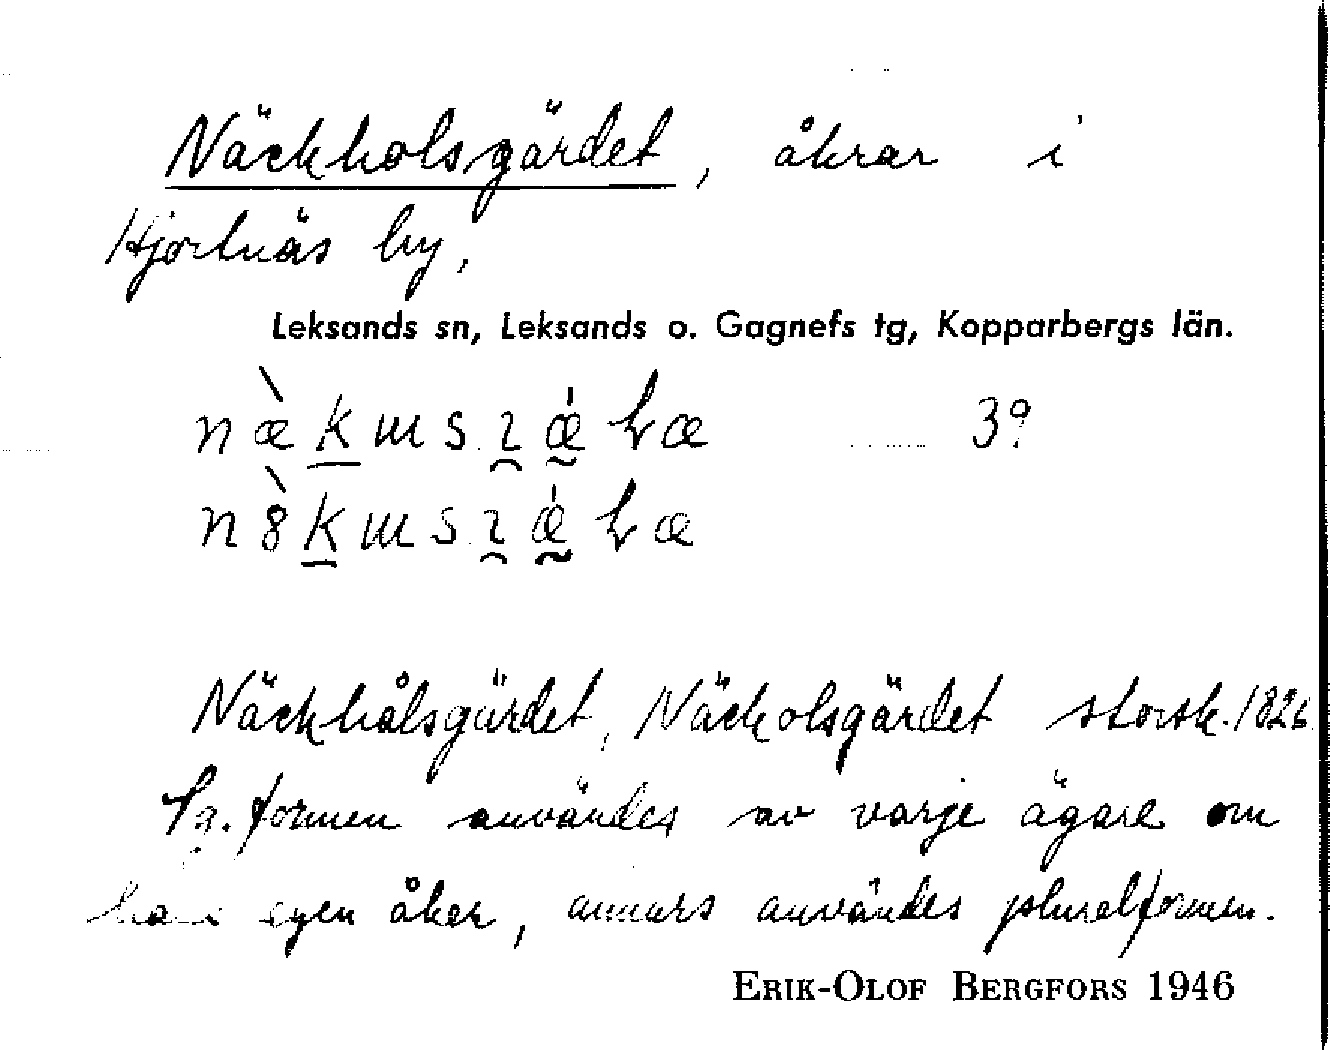 Näckholsgärdet, åkrar i
Hjortnäs by,
Leksands sn, Leksands o. Gagnefs tg, Kopparbergs län.
3?
Näckhålsgärdet, Näckolsgärdet storsk. 1826
Sg. formen användes av varje ägare om
hans egen åker, annars användes pluralformen.
ERIK-OLOF BERGFORS 1946